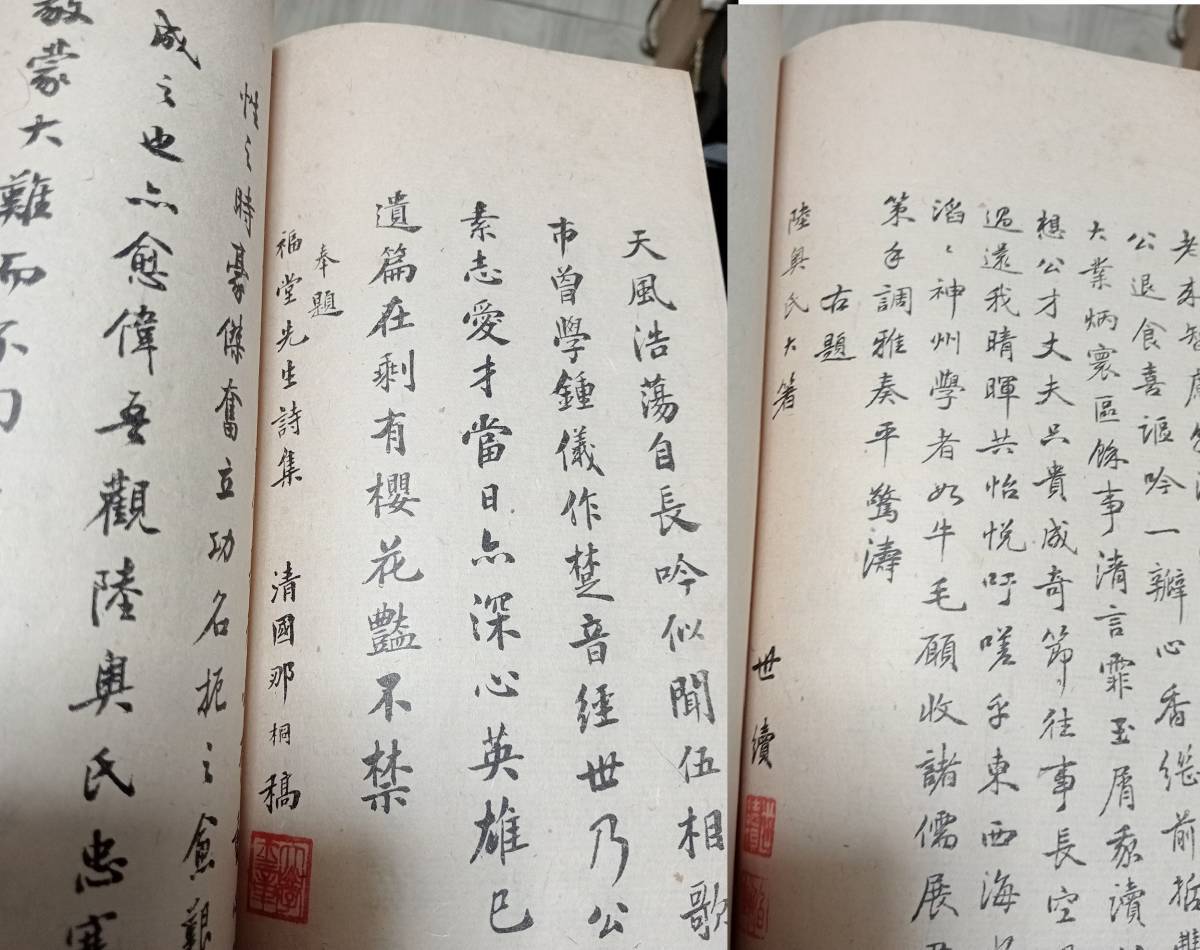 老來智慮
公退食喜謳吟一瓣心香繼前
大業炳寰區餘事清言霏玉屑 讀
想公才丈夫只貴成奇節往事長空
過還我晴暉共怡悅吁嗟乎東西海
滔〻神州學者如牛毛願收諸儒展
策手調雅奏平驚濤
右題
陸奧氏大著
世續
天風浩蕩自長吟似聞伍相歌
市曾學鍾儀作楚音經世乃公
素志愛才當日亦深心英雄已
遺篇在剩有櫻花豔不禁
奉題
福堂先生詩集 清國那桐稿
性之時豪傑奮立功名扼之愈艱
成之也亦愈偉吾觀陸奧氏忠
蒙大難而不